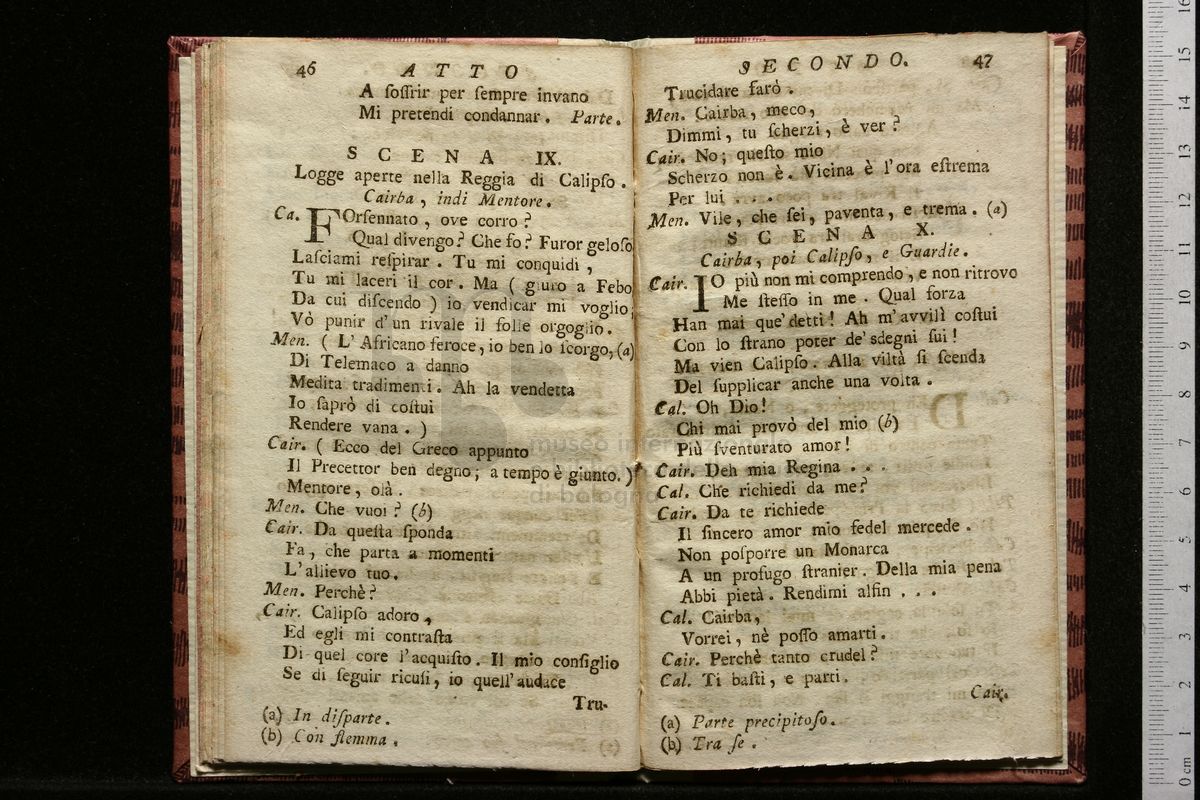 46 ATTO
A ſoffrir per ſempre invano
Mi pretendi condannar. Parte.
SCENA IX.
Logge aperte nella Reggia di Calipſo.
Cairba, indi Mentore.
Ca. FOrſennato, ove corro?
Qual divengo? Che fo? Furor geloſo
Laſciami reſpirar. Tu mi conquidi,
Tu mi laceri il cor. Ma (giuro a Febo
Da cui diſcendo) io vendicar mi voglio;
Vò punir d'un rivale il folle orgoglio.
Men. (L'Africano feroce, io ben lo ſcorgo, (a)
Di Telemaco a danno
Medita tradimenti. Ah la vendetta
Io ſaprò di coſtui
Rendere vana.)
Cair. (Ecco del Greco appunto
Il Precettor ben degno; a tempo è giunto.)
Mentore, olà.
Men. Che vuoi? (b)
Cair. Da queſta ſponda
Fa, che parta a momenti
L'allievo tuo.
Men. Perchè?
Cair. Calipſo adoro,
Ed egli mi contraſta
Di quel core l'acquiſto. Il mio conſiglio
Se di ſeguir ricuſi, io quell'audace
Tru-
(a) In diſparte.
(b) Con flemma.
SECONDO. 47
Trucidare farò.
Men. Cairba, meco,
Dimmi, tu ſcherzi, è ver?
Cair. No; queſto mio
Scherzo non è. Vicina è l'ora eſtrema
Per lui ....
Men. Vile, che ſei, paventa, e trema. (a)
SCENA X.
Cairba, poi Calipſo, e Guardie.
Cair. IO più non mi comprendo, e non ritrovo
Me ſteſſo in me. Qual forza
Han mai que' detti! Ah m'avvilì coſtui
Con lo ſtrano poter de' sdegni ſui!
Ma vien Calipſo. Alla viltà ſi ſcenda
Del ſupplicar anche una volta.
Cal. Oh Dio!
Chi mai provò del mio (b)
Più ſventurato amor!
Cair. Deh mia Regina ...
Cal. Che richiedi da me?
Cair. Da te richiede
Il ſincero amor mio fedel mercede.
Non poſporre un Monarca
A un profugo ſtranier. Della mia pena
Abbi pietà. Rendimi alfin ...
Cal. Cairba,
Vorrei, nè poſſo amarti.
Cair. Perchè tanto crudel?
Cal. Ti baſti, e parti.
Cair.
(a) Parte precipitoſo.
(b) Tra ſe.
museo internazionale
di bologna
0 cm 1 2 3 4 5 6 7 8 9 10 11 12 13 14 15 16